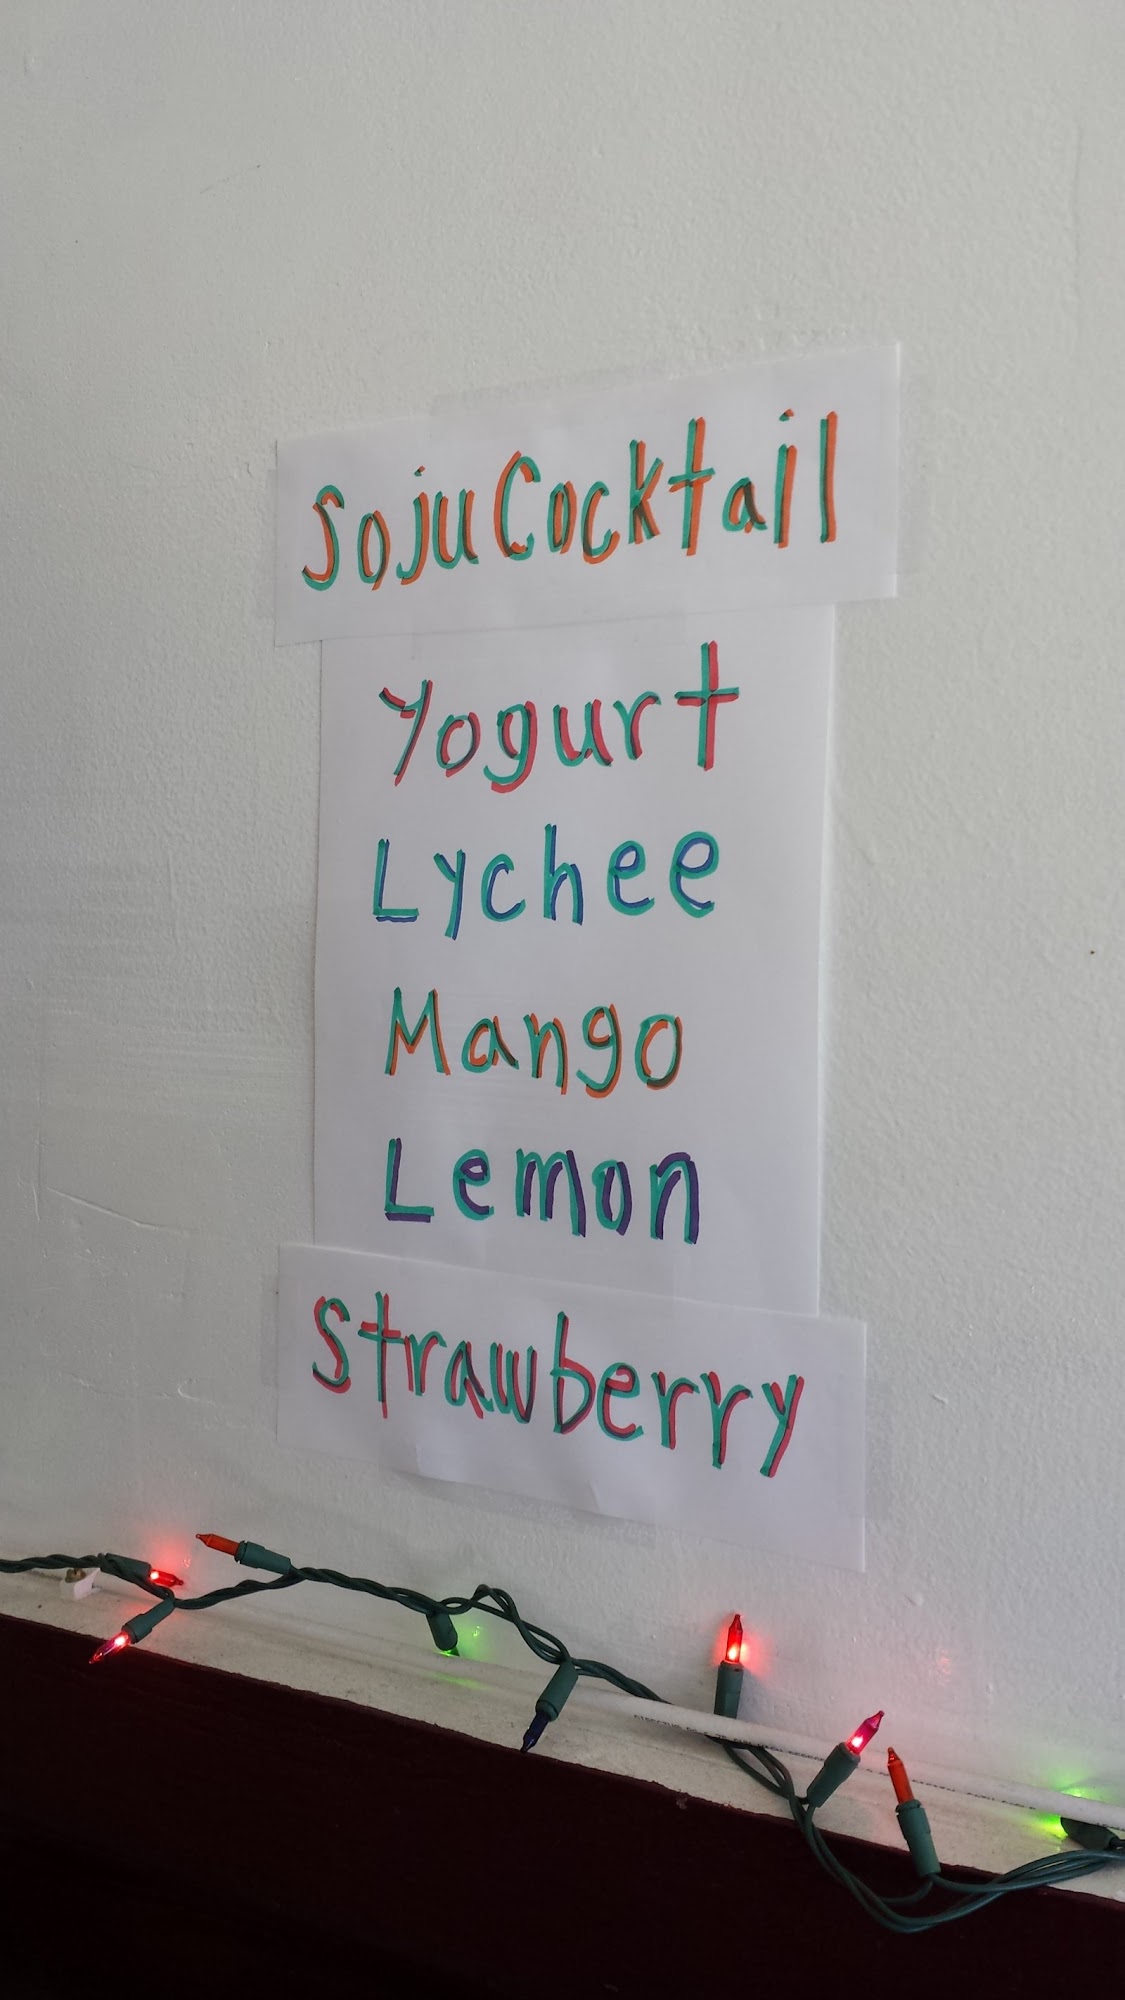 Soju Cocktail
Yogurt
Lychee
Mango
Lemon
Strawberry